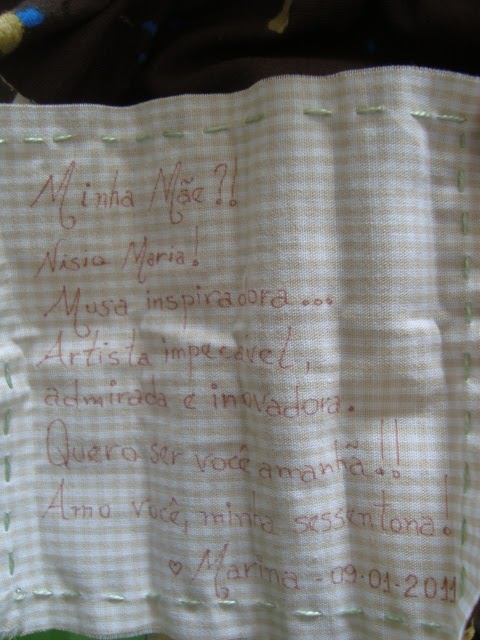 Minha Mãe?!
Nisia Maria!
Musa inspiradora...
Artista impecável,
admirada e inovadora.
Quero ser você amanhã!!
Amo você, minha sessentona!
♡ Marina - 09-01-2011